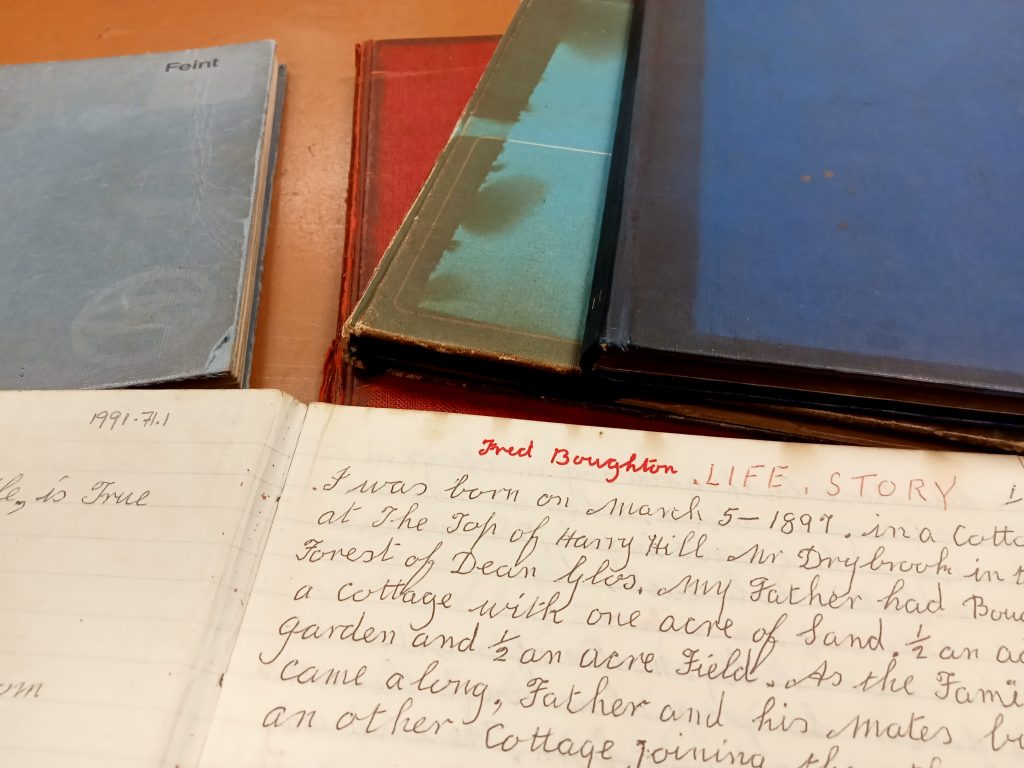 Feint
1991-71.1
is True
Fred Boughton. LIFE. STORY
I was born on March 5-1897. in a Cotta
at The Top of Harry Hill Nr Drybrook in t
Forest of Dean Glos. My Father had Boug
a cottage with one acre of Land. ½ an ac
garden and ½ an acre Field. As the Fami
came along, Father and his Mates bu
an other Cottage Joining the